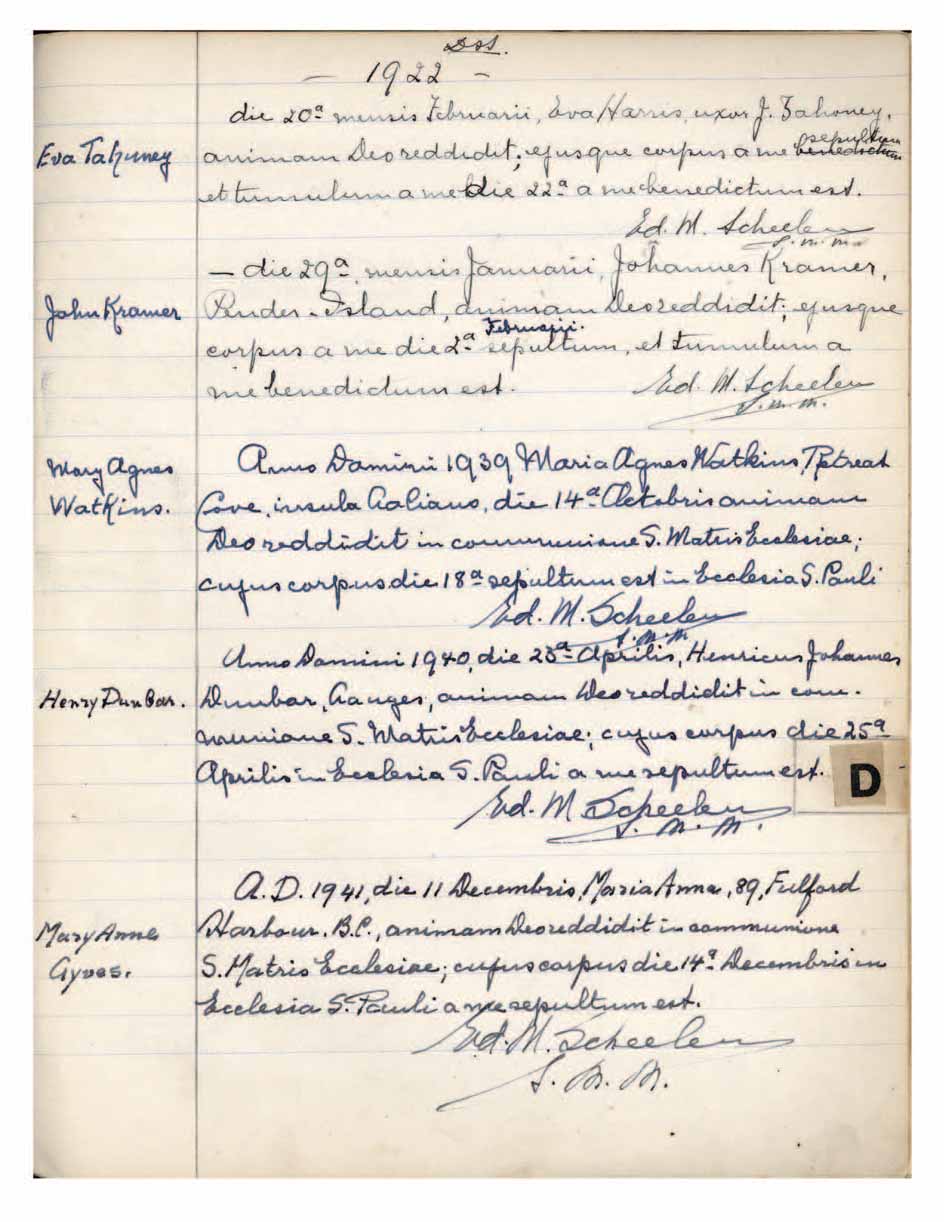 — 1922 —
die 20ª mensis Februarii, Eva Harris, uxor J. Zahoney,
Eva Tahuney
animam Deo reddidit; ejusque corpus a me benedictum sepultum
et tumulum a me die 22ª a me benedictum est.
Ed. M. Scheelen
S.M.M.
— die 29ª mensis Januarii, Johannes Kramer,
John Kramer
Pender-Island, animam Deo reddidit; ejusque
Februarii.
corpus a me die 2ª sepultum, et tumulum a
me benedictum est.
Ed. M. Scheelen
S.M.M.
Mary Agnes
Watkins.
Anno Domini 1939 Maria Agnes Watkins, Retreat
Cove, insula Galiano, die 14ª Octobris animam
Deo reddidit in communione S. Matris Ecclesiae;
cujus corpus die 18ª sepultum est in Ecclesia S. Pauli
Ed. M. Scheelen
S.M.M.
Anno Domini 1940, die 23ª Aprilis, Henricus Johannes
Henry Dunbar.
Dunbar, Ganges, animam Deo reddidit in com-
munione S. Matris Ecclesiae; cujus corpus die 25ª
Aprilis in Ecclesia S. Pauli a me sepultum est.
D
Ed. M. Scheelen
S.M.M.
A.D. 1941, die 11 Decembris, Maria Anna, 89, Fulford
Mary Anne
Gyves.
Harbour. B.C., animam Deo reddidit in communione
S. Matris Ecclesiae; cujus corpus die 14ª Decembris in
Ecclesia S. Pauli a me sepultum est.
Ed. M. Scheelen
S.M.M.